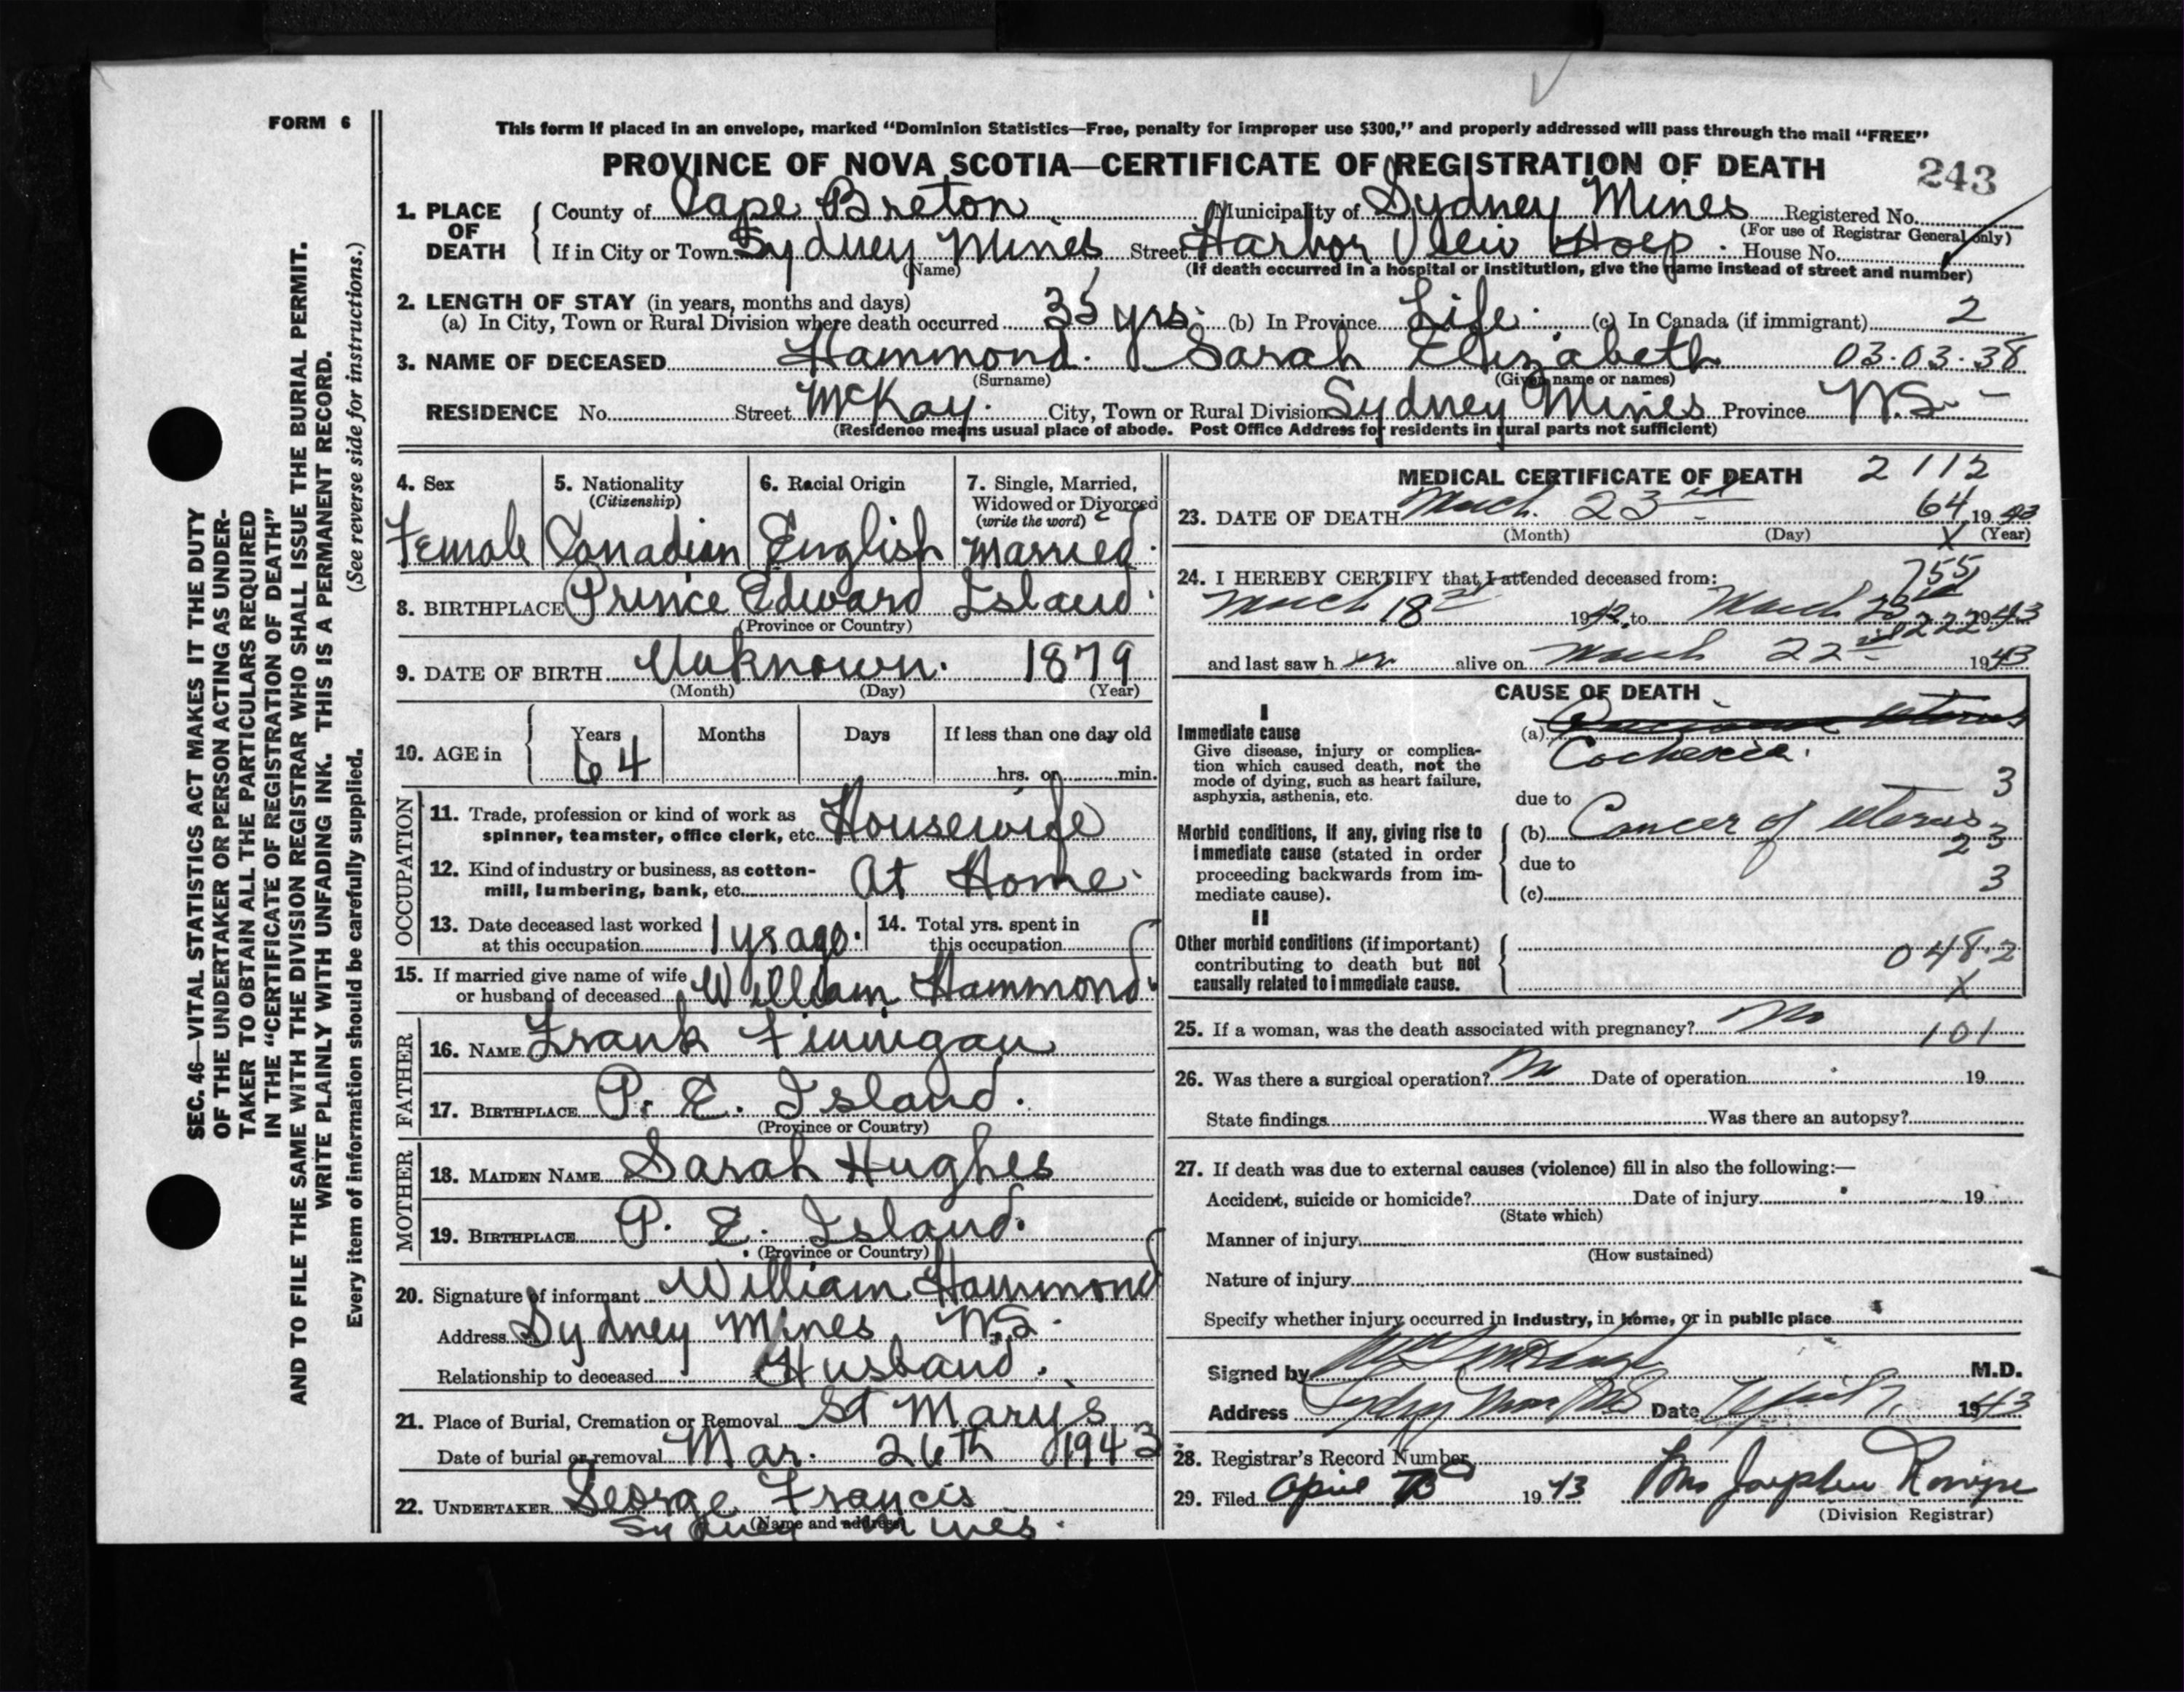 FORM 6
This form if placed in an envelope, marked “Dominion Statistics—Free, penalty for improper use $300,” and properly addressed will pass through the mail “FREE”
PROVINCE OF NOVA SCOTIA—CERTIFICATE OF REGISTRATION OF DEATH 243
1. PLACE OF DEATH
County of Cape Breton Municipality of Sydney Mines Registered No.
(For use of Registrar General only)
If in City or Town Sydney Mines Street Harbor View Hosp. House No.
(Name) (If death occurred in a hospital or institution, give the name instead of street and number)
2. LENGTH OF STAY (in years, months and days)
(a) In City, Town or Rural Division where death occurred 35 yrs. (b) In Province Life (c) In Canada (if immigrant) 2
3. NAME OF DECEASED Hammond. Sarah Elizabeth 03.03.38
(Surname) (Given name or names)
RESIDENCE No. Street McKay. City, Town or Rural Division Sydney Mines Province N.S. -
(Residence means usual place of abode. Post Office Address for residents in rural parts not sufficient)
4. Sex Female
5. Nationality (Citizenship) Canadian
6. Racial Origin English
7. Single, Married, Widowed or Divorced (write the word) Married.
8. BIRTHPLACE Prince Edward Island.
(Province or Country)
9. DATE OF BIRTH Unknown. 1879
(Month) (Day) (Year)
10. AGE in Years Months Days If less than one day old
64 hrs. or min.
OCCUPATION
11. Trade, profession or kind of work as spinner, teamster, office clerk, etc. Housewife
12. Kind of industry or business, as cotton-mill, lumbering, bank, etc. At Home.
13. Date deceased last worked at this occupation 1 yr ago. 14. Total yrs. spent in this occupation
15. If married give name of wife or husband of deceased William Hammond.
FATHER
16. NAME Frank Finnigan
17. BIRTHPLACE P. E. Island.
(Province or Country)
MOTHER
18. MAIDEN NAME Sarah Hughes
19. BIRTHPLACE P. E. Island.
(Province or Country)
20. Signature of informant William Hammond
Address Sydney Mines, N.S.
Relationship to deceased Husband.
21. Place of Burial, Cremation or Removal St Marys
Date of burial or removal Mar. 26th 1943
22. UNDERTAKER George Francis
(Name and address)
Sydney Mines.
MEDICAL CERTIFICATE OF DEATH 2 112
23. DATE OF DEATH March 23rd 64 1943
(Month) (Day) X (Year)
24. I HEREBY CERTIFY that I attended deceased from: 755
March 18 1942, to March 1943
222
and last saw h er alive on March 22nd 1943
CAUSE OF DEATH
I
Immediate cause
Give disease, injury or complication which caused death, not the mode of dying, such as heart failure, asphyxia, asthenia, etc.
(a) Cachexia.
3
due to
Morbid conditions, if any, giving rise to immediate cause (stated in order proceeding backwards from immediate cause).
(b) Cancer of uterus
23
due to
(c) 3
II
Other morbid conditions (if important) contributing to death but not causally related to immediate cause.
048.2
X
25. If a woman, was the death associated with pregnancy? No 101
26. Was there a surgical operation? No Date of operation 19
State findings Was there an autopsy?
27. If death was due to external causes (violence) fill in also the following:—
Accident, suicide or homicide? Date of injury 19
(State which)
Manner of injury
(How sustained)
Nature of injury
Specify whether injury occurred in industry, in home, or in public place
Signed by M.D.
Address Sydney Mines NS Date April 7, 1943
28. Registrar's Record Number
29. Filed April 1943 Mrs Josephine
(Division Registrar)
SEC. 46—VITAL STATISTICS ACT MAKES IT THE DUTY
OF THE UNDERTAKER OR PERSON ACTING AS UNDER-
TAKER TO OBTAIN ALL THE PARTICULARS REQUIRED
IN THE “CERTIFICATE OF REGISTRATION OF DEATH”
AND TO FILE THE SAME WITH THE DIVISION REGISTRAR WHO SHALL ISSUE THE BURIAL PERMIT.
WRITE PLAINLY WITH UNFADING INK. THIS IS A PERMANENT RECORD.
Every item of information should be carefully supplied. (See reverse side for instructions.)